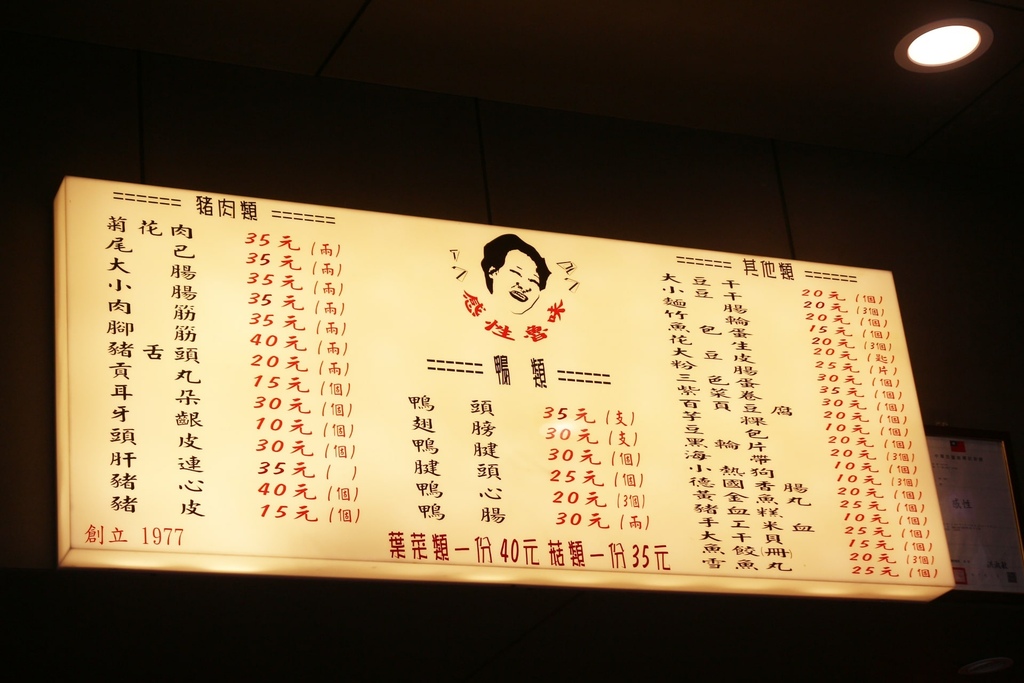 ====== 豬肉類 ======
菊花肉 35元(兩)
尾巴 35元(兩)
大腸 35元(兩)
小腸 35元(兩)
肉筋 35元(兩)
腳筋 40元(兩)
豬舌頭 20元(兩)
貢丸 15元(個)
耳朵 30元(個)
牙齦 10元(個)
頭皮 30元(個)
肝連 35元( )
豬心 40元(個)
豬皮 15元(個)
創立 1977
感性魯味
====== 鴨類 ======
鴨頭 35元(支)
翅膀 30元(支)
鴨腱 30元(個)
腱頭 25元(個)
鴨心 20元(3個)
鴨腸 30元(兩)
葉菜類一份40元 菇類一份35元
====== 其他類 ======
大豆干 20元(個)
小豆干 20元(3個)
麵腸 20元(個)
竹輪 15元(個)
魚包蛋 20元(3個)
花生 20元(匙)
大豆皮 25元(片)
粉腸 30元(個)
三色蛋 35元(個)
紫菜卷 30元(個)
百頁豆腐 20元(個)
芋粿 10元(個)
豆包 20元(個)
黑輪片 20元(3個)
海帶 10元(個)
小熱狗 10元(3個)
德國香腸 20元(個)
黃金魚丸 25元(個)
豬血糕 10元(個)
手工米血 25元(個)
大干貝 15元(個)
魚餃(冊) 20元(3個)
雪魚丸 25元(個)